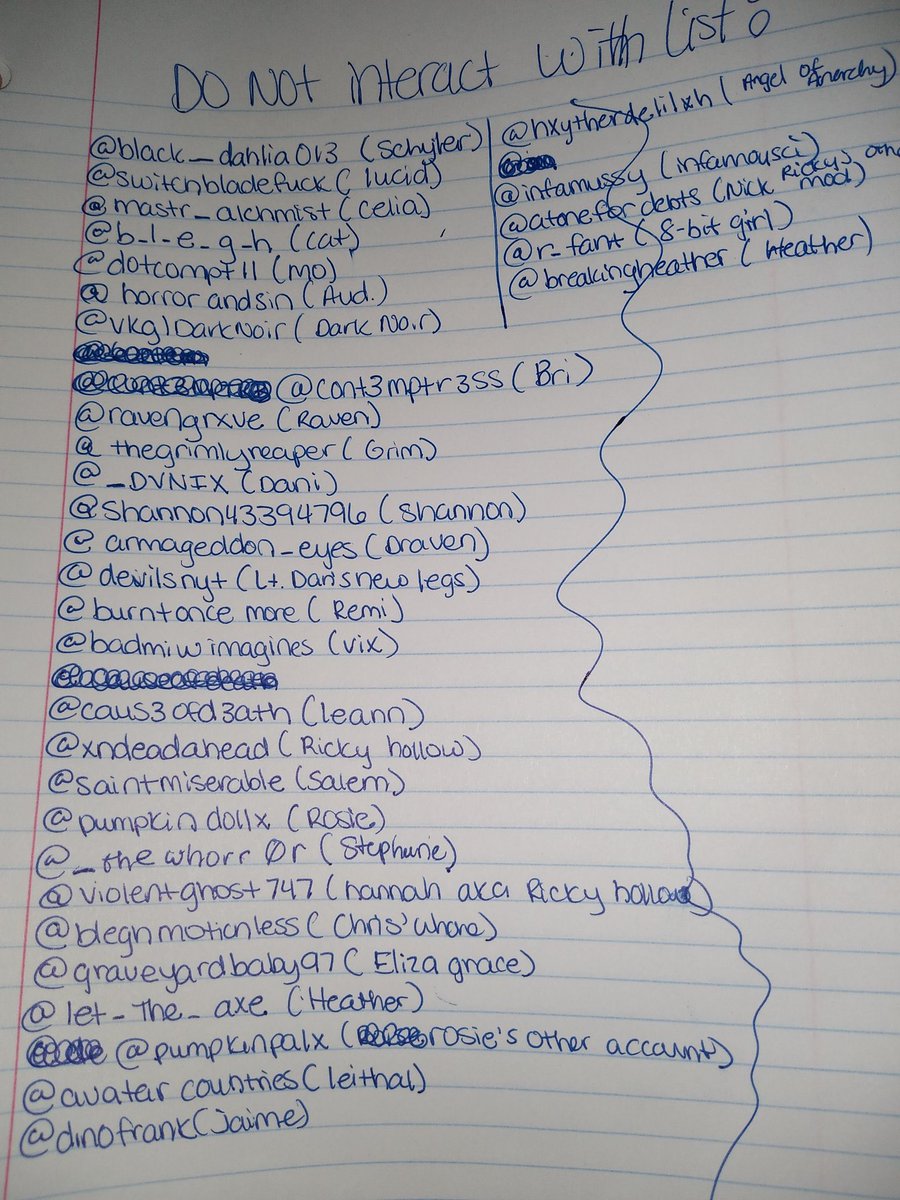 DO NOT interact with list :
@black_dahlia013 (Schyler)
@switchbladefuck (lucid)
@mastr_alchmist (Celia)
@b_l_e_g_h (cat)
@dotcompt11 (Mo)
@horrorandsin (Aud.)
@vkg1DarkNoir (Dark Noir)
@cont3mptr3ss (Bri)
@ravengrxve (Raven)
@thegrimlyreaper (Grim)
@_DVNIX (Dani)
@Shannon43394796 (Shannon)
@armageddon_eyes (Draven)
@devilsnyt (Lt. Dan's new legs)
@burntonce more (Remi)
@badmiwimagines (vix)
@caus3ofd3ath (leann)
@xndeadahead (Ricky hollow)
@saintmiserable (Salem)
@pumpkindollx (Rosie)
@_the whorr Ør (Stephanie)
@violentghost747 (hannah aka Ricky hollow)
@bleghmotionless (Chris' whore)
@graveyardbaby97 (Eliza grace)
@let_The_axe (Heather)
@pumpkinpalx (rosie's other account)
@avatar countries (leithal)
@dinofrank (Jaime)
@hxytherdelilxh (Angel Of Anarchy)
@infamussy (infamousci)
@atonefordebts (Nick Ricky's other mod)
@r_fant (8-bit girl)
@breakingheather (Heather)